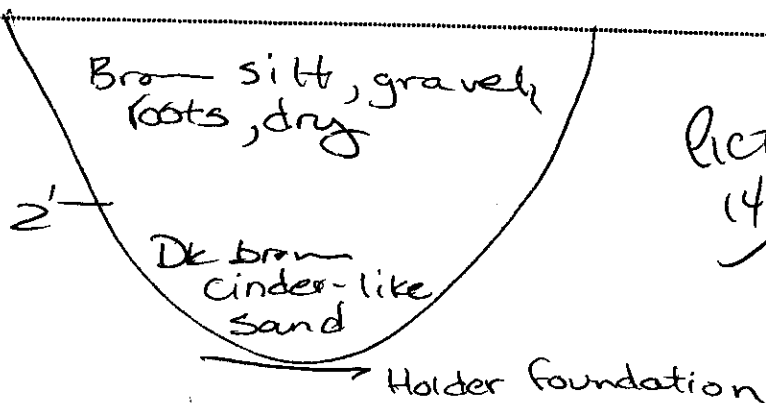 Brown silt, gravel,
roots, dry
2'
Dk brown
cinder-like
sand
Holder foundation